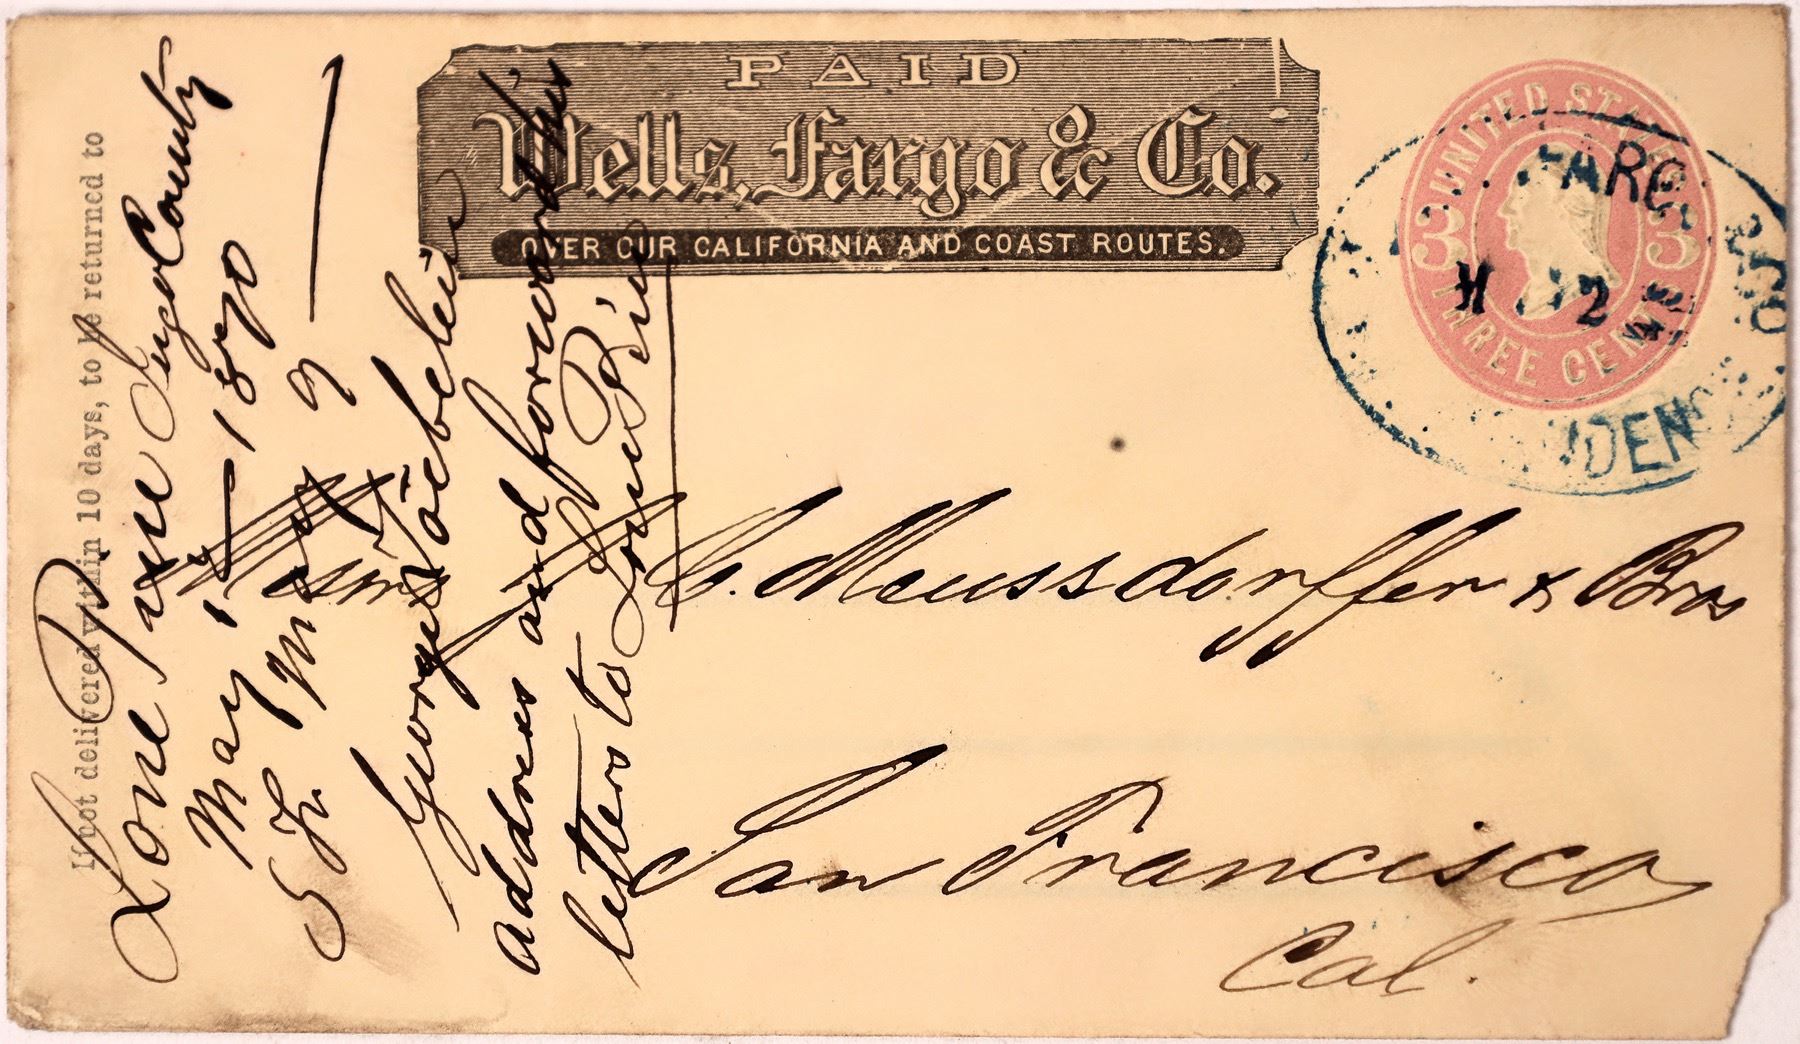 PAID
Wells, Fargo & Co.
OVER OUR CALIFORNIA AND COAST ROUTES.
UNITED STATES
3 3
THREE CENTS
FARGO
2
If not delivered within 10 days, to be returned to
Lone Pine Inyo County
May 1870
George
address and forward his
letters to Lone Pine
Messrs C. Meussdorffer & Bros
San Francisco
Cal.